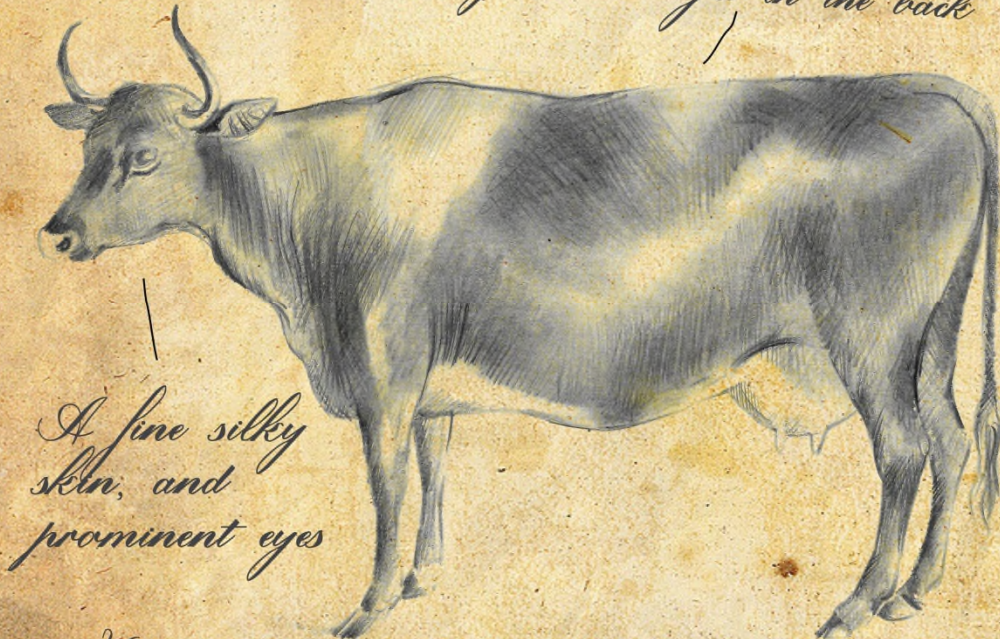 in the back
A fine silky
skin, and
prominent eyes